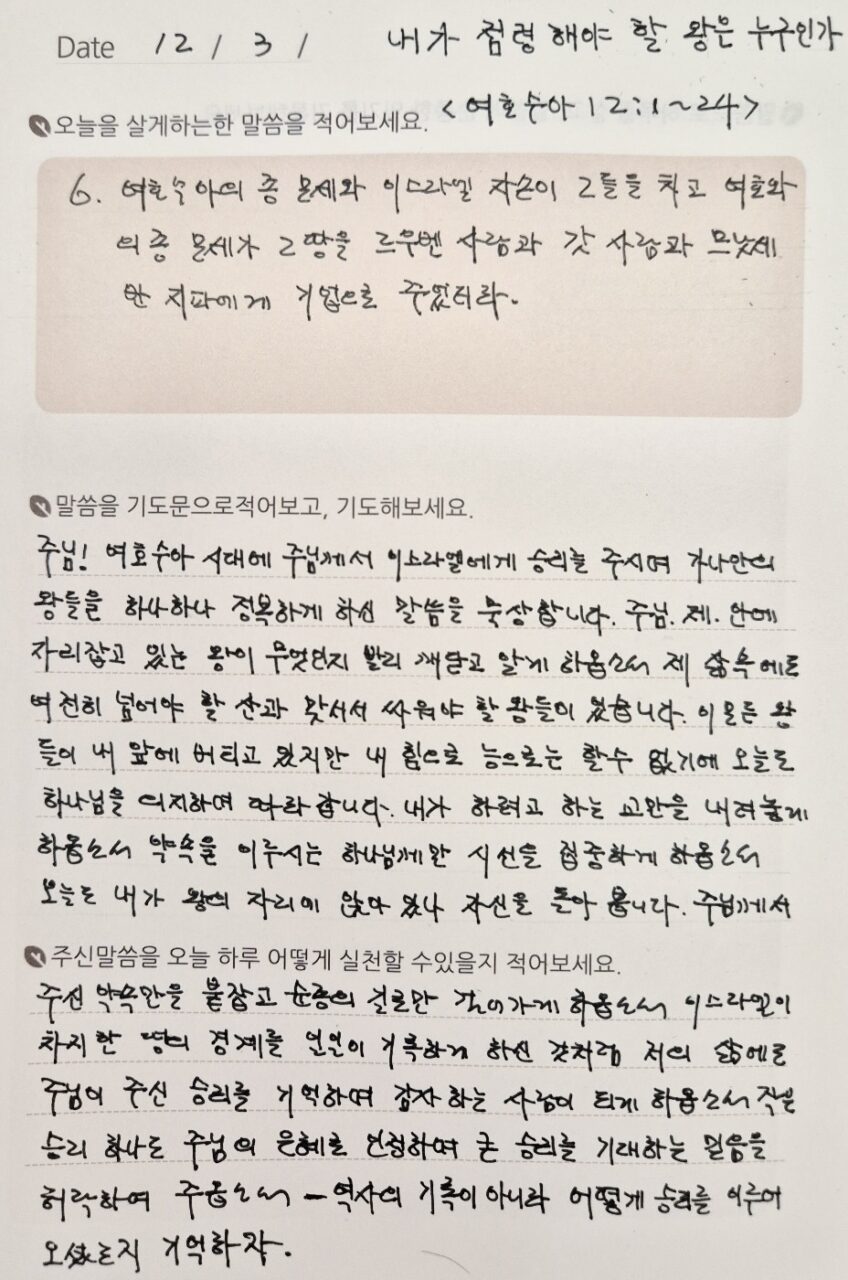 Date 12 / 3 / 내가 점령해야 할 왕은 누구인가
<여호수아 12:1~24>
오늘을 살게하는한 말씀을 적어보세요.
6. 여호수아의 종 모세와 이스라엘 자손이 그들을 치고 여호와
의 종 모세가 그 땅을 르우벤 사람과 갓 사람과 므낫세
반 지파에게 기업으로 주었더라.
말씀을 기도문으로적어보고, 기도해보세요.
주님! 여호수아 시대에 주님께서 이스라엘에게 승리를 주시며 가나안의
왕들을 하나하나 정복하게 하신 말씀을 묵상합니다. 주님. 제. 안에
자리잡고 있는 왕이 무엇인지 빨리 깨닫고 알게 하옵소서 제 삶속에도
여전히 넘어야 할 산과 맞서서 싸워야 할 왕들이 있습니다. 이 모든 왕
들이 내 앞에 버티고 있지만 내 힘으로 능으로는 할수 없기에 오늘도
하나님을 의지하며 따라 갑니다. 내가 하려고 하는 교만을 내려놓게
하옵소서 약속을 이루시는 하나님께만 시선을 집중하게 하옵소서
오늘도 내가 왕의 자리에 앉아 있나 자신을 돌아 봅니다. 주님께서
주신말씀을 오늘 하루 어떻게 실천할 수있을지 적어보세요.
주신 약속만을 붙잡고 순종의 길로만 걸어가게 하옵소서 이스라엘이
차지한 땅의 경계를 일일이 기록하게 하신 것처럼 저의 삶에도
주님이 주신 승리를 기억하며 감사하는 사람이 되게 하옵소서 작은
승리 하나도 주님의 은혜로 인정하며 큰 승리를 기대하는 믿음을
허락하여 주옵소서 – 역사의 기록이 아니라 어떻게 승리를 이루어
오셨는지 기억하자.